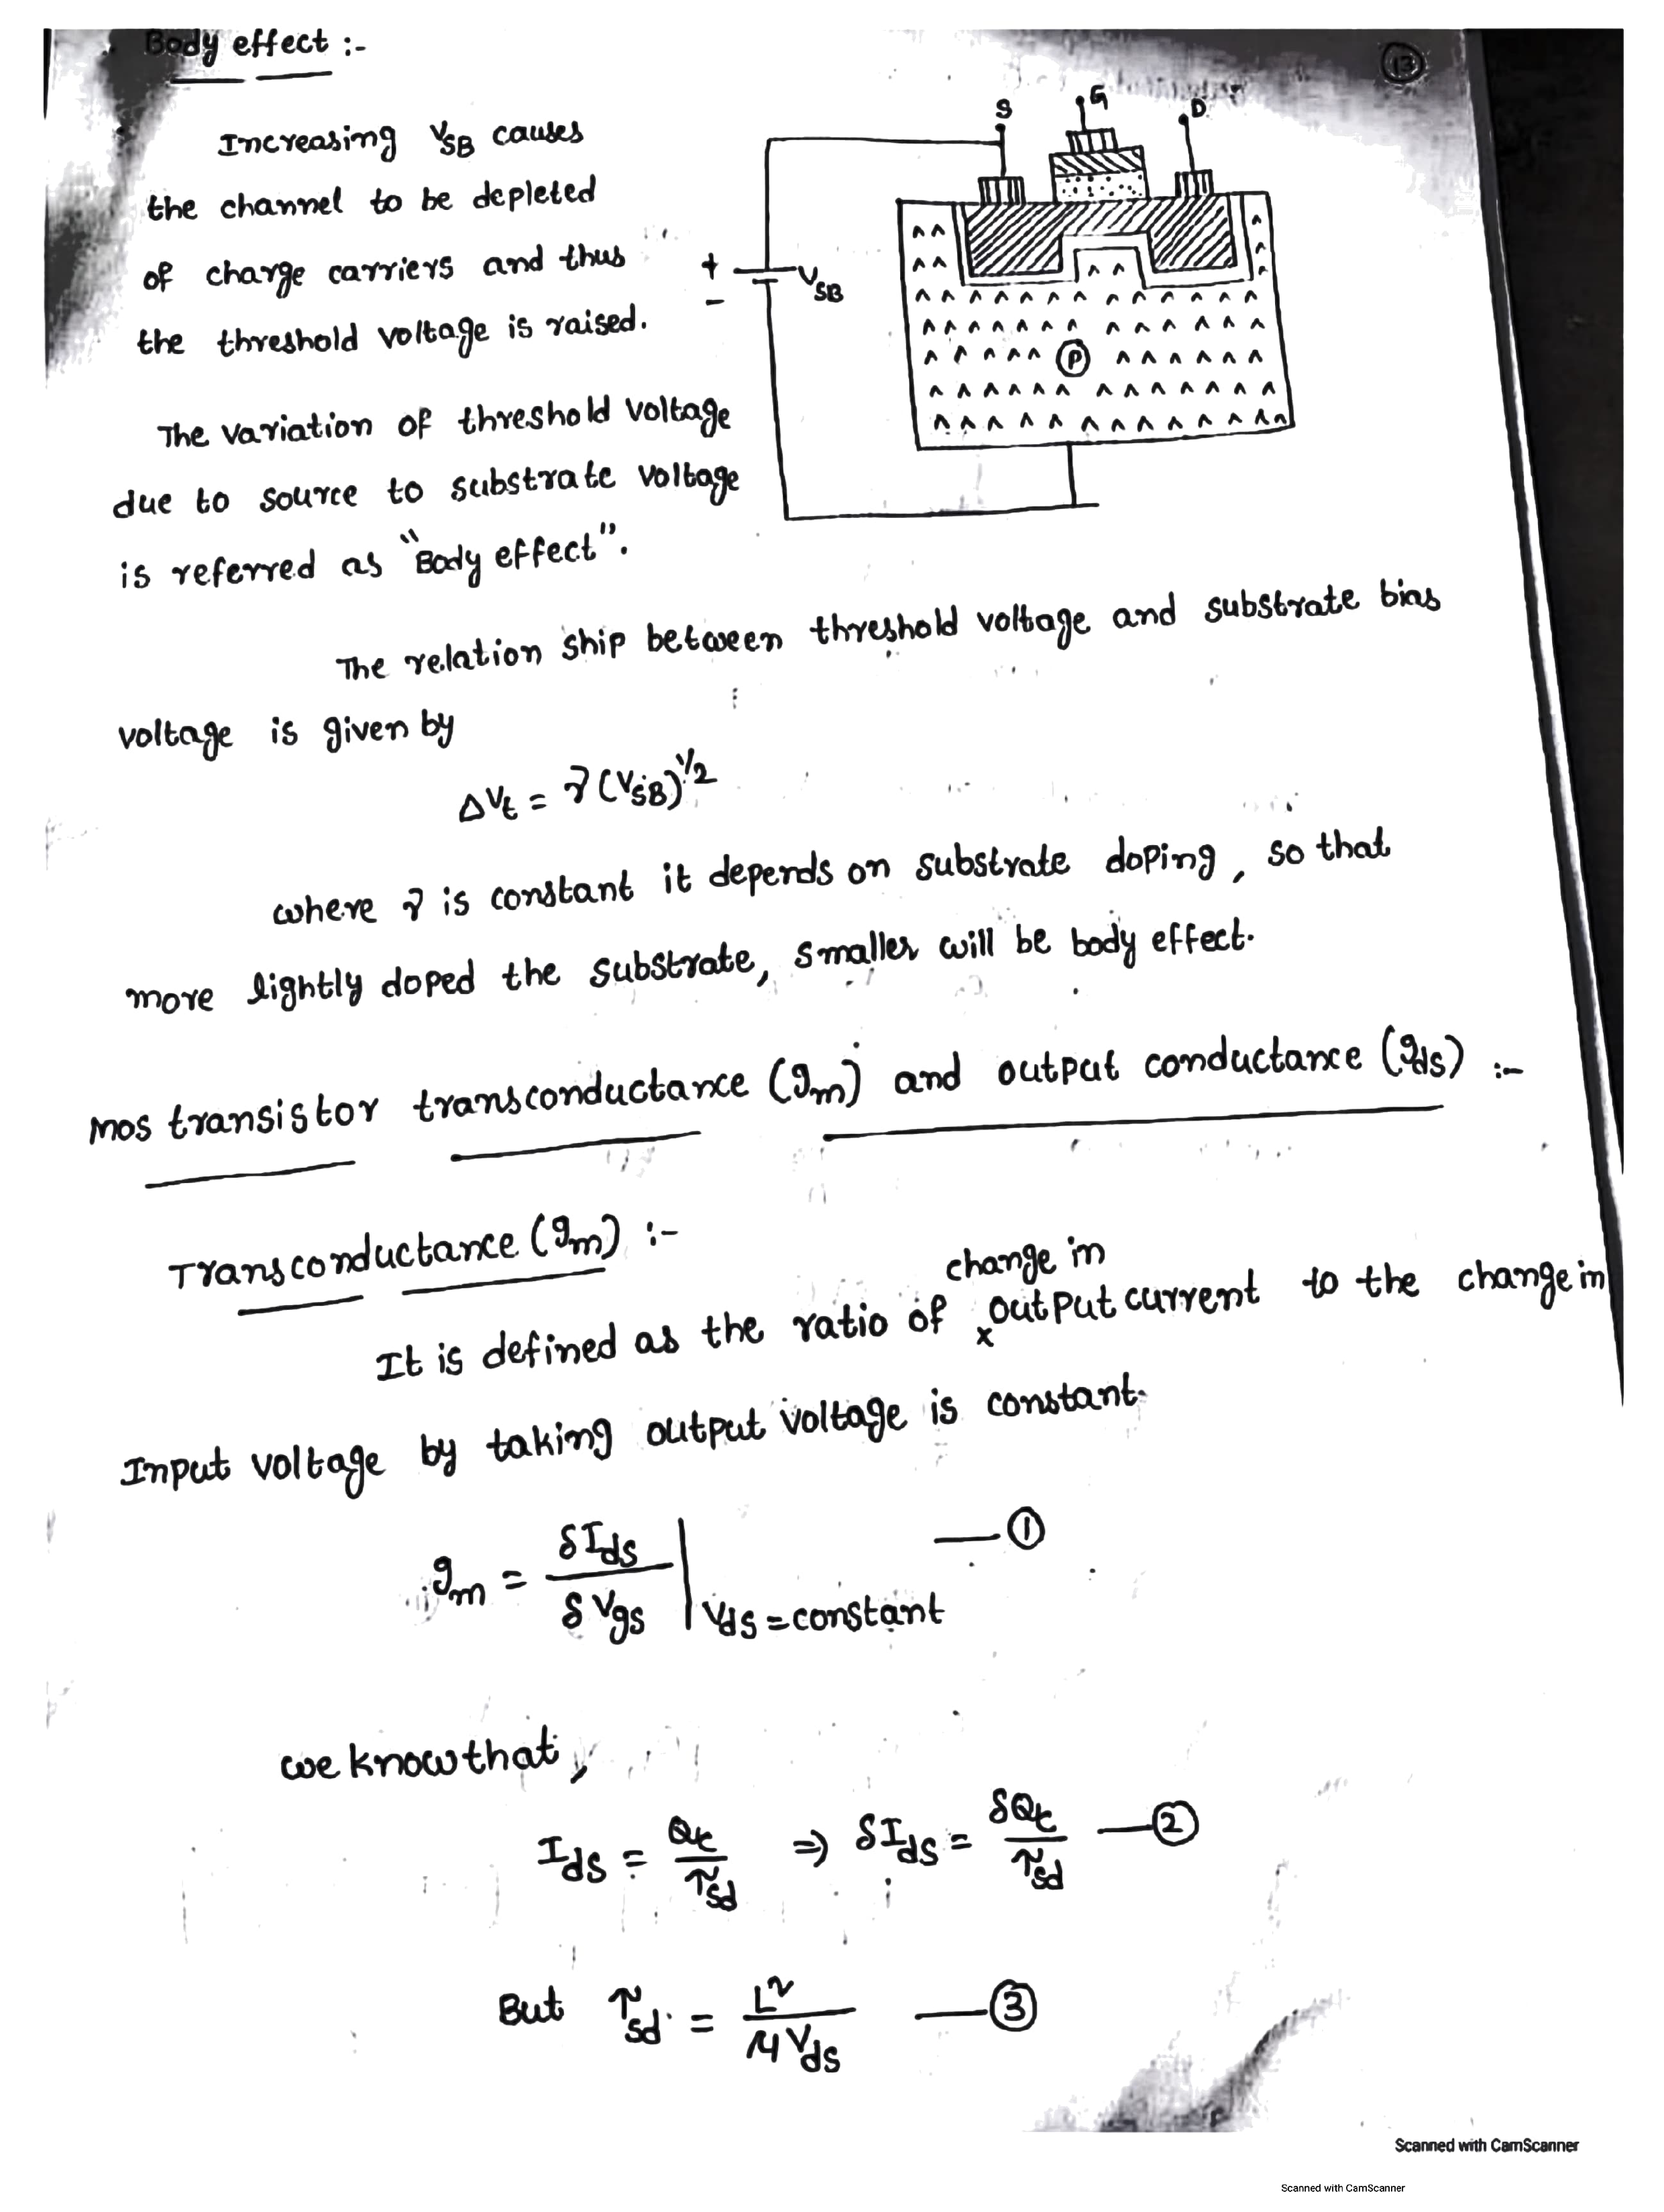 Body effect :-
13
Increasing V_SB causes
the channel to be depleted
of charge carriers and thus
the threshold voltage is raised.
S G D
+
-
V_SB
P
The variation of threshold voltage
due to source to substrate voltage
is referred as "Body effect".
The relation ship between threshold voltage and substrate bias
voltage is given by
ΔV_t = γ (V_SB)^1/2
where γ is constant it depends on substrate doping, so that
more lightly doped the substrate, smaller will be body effect.
Mos transistor transconductance (g_m) and output conductance (g_ds) :-
Transconductance (g_m) :-
change in
It is defined as the ratio of x output current to the change in
Input voltage by taking output voltage is constant.
g_m = δI_ds / δV_gs | V_ds = constant — ①
we know that,
I_ds = Q_c / τ_sd ⇒ δI_ds = δQ_c / τ_sd — ②
But τ_sd = L² / μ V_ds — ③
Scanned with CamScanner
Scanned with CamScanner